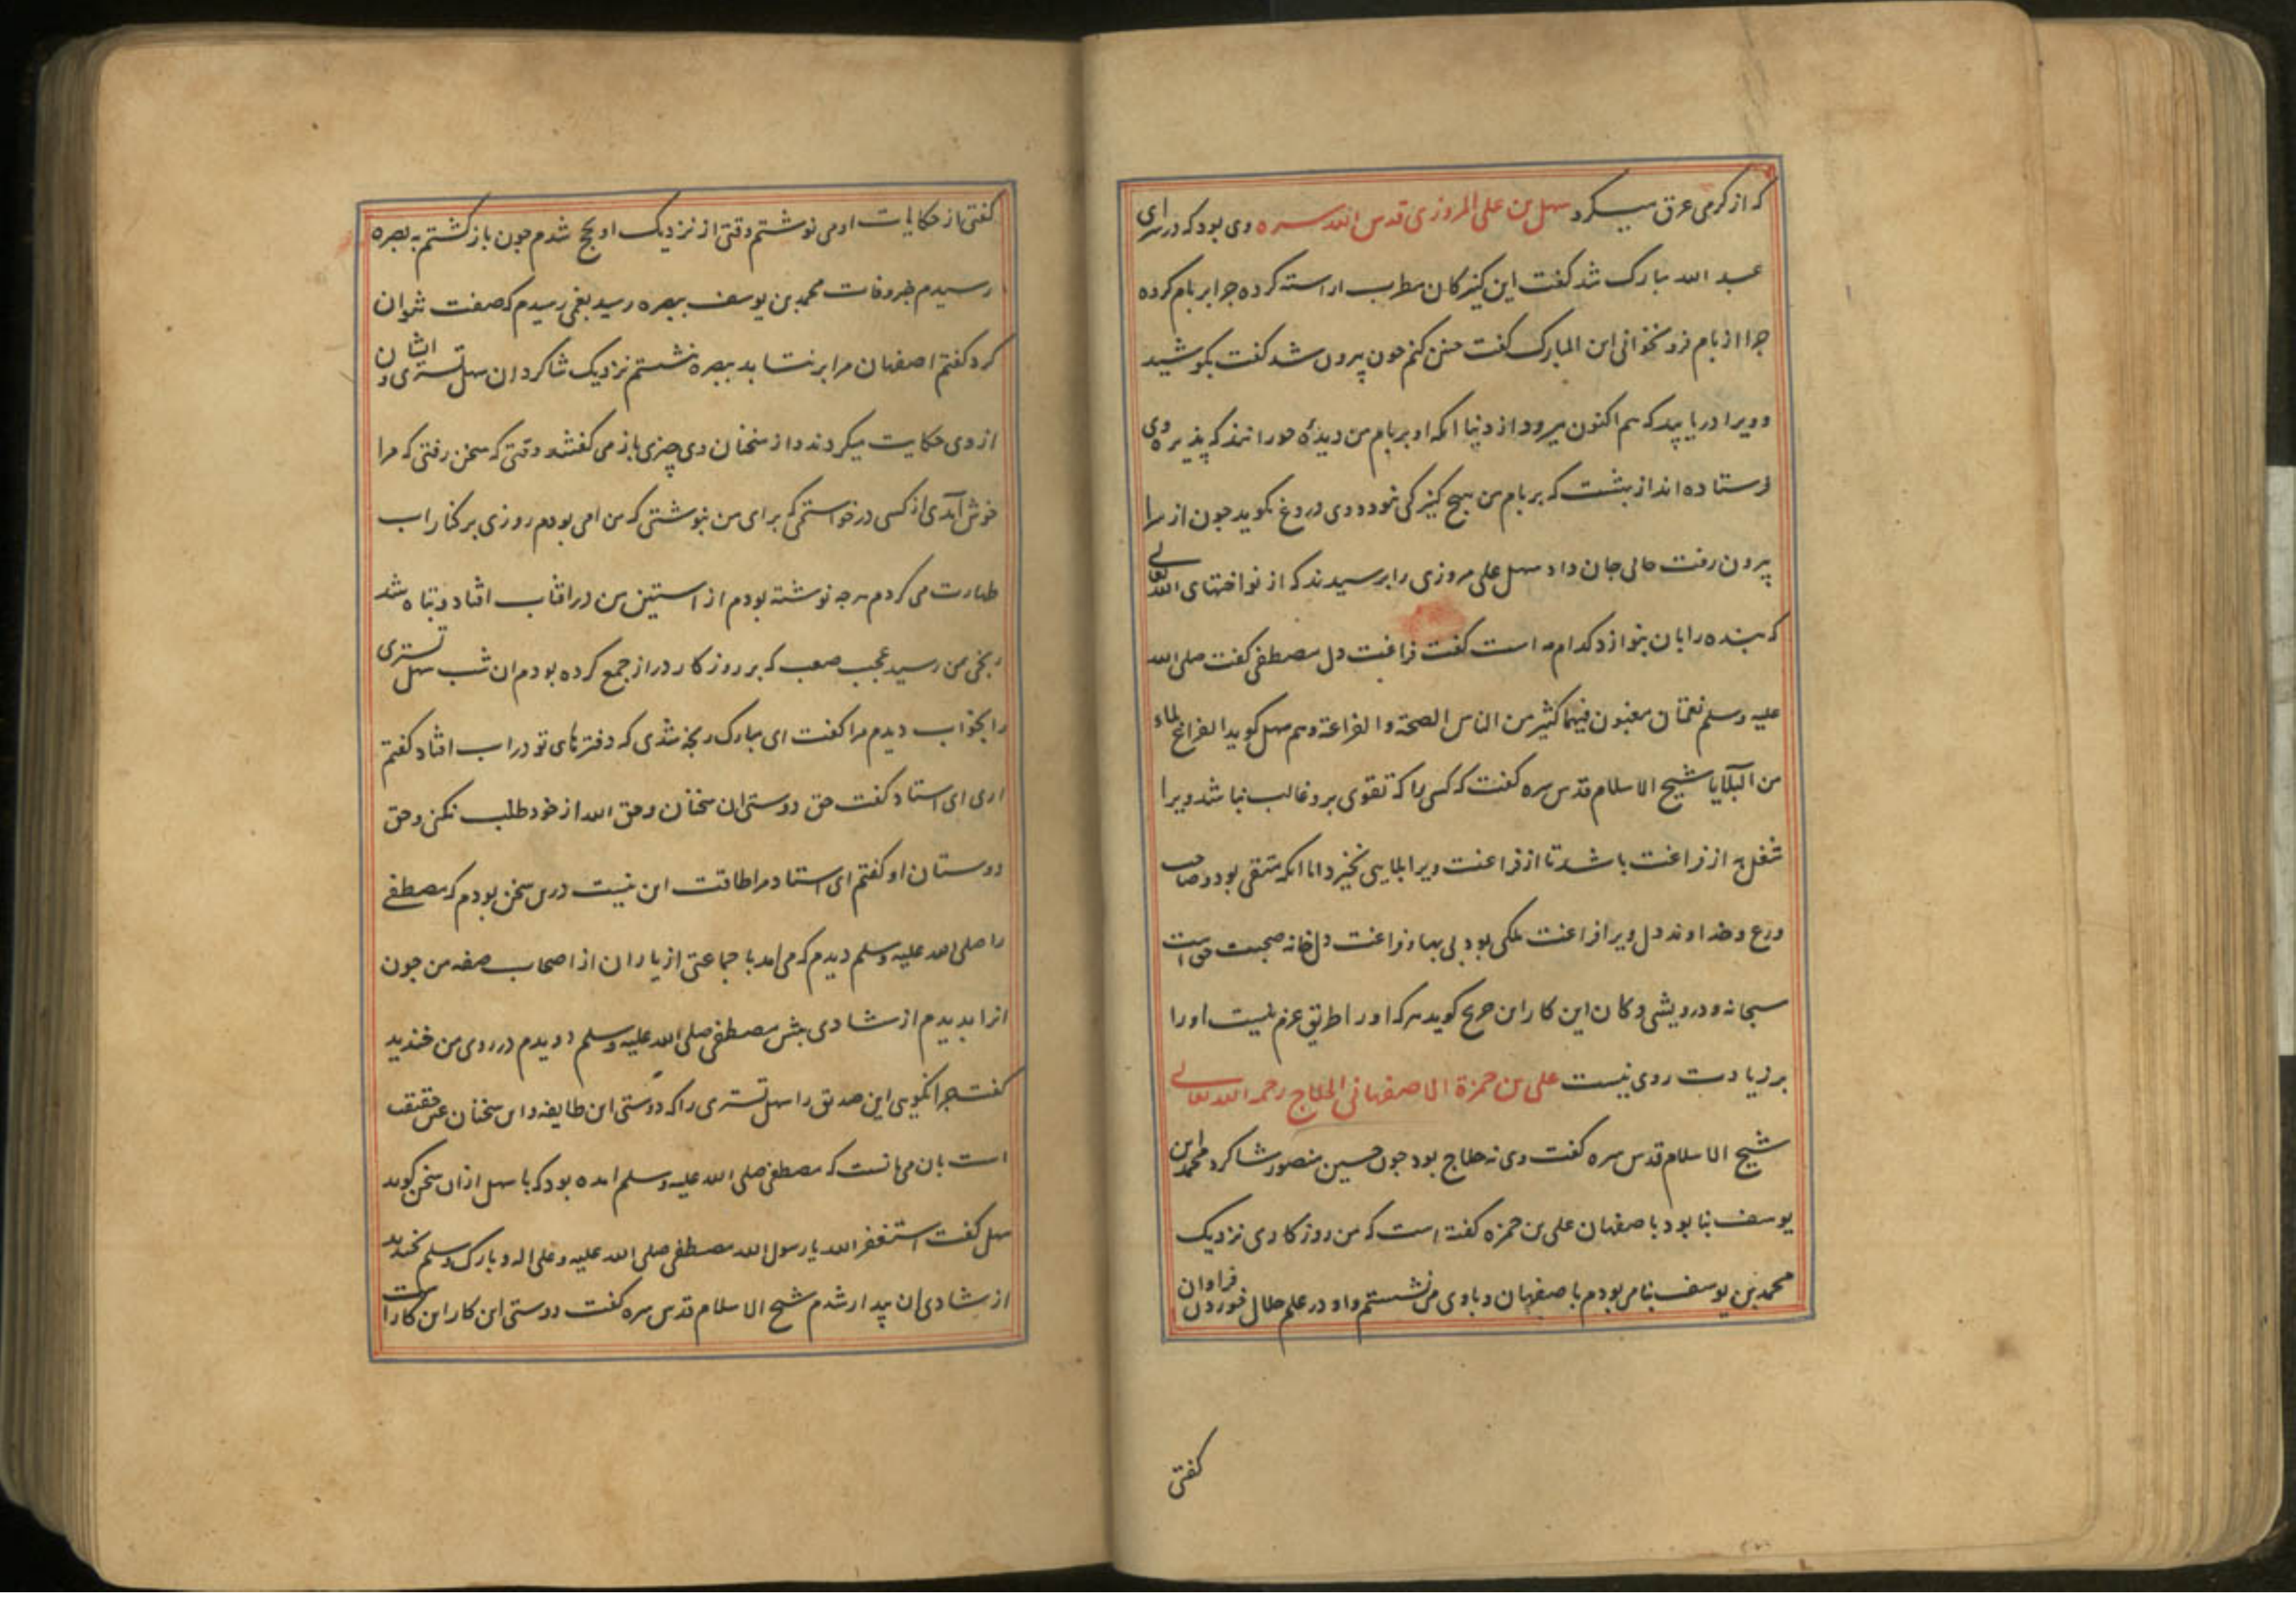 که از کرمی عرق میکرد سهل بن علی المروزی قدس الله سره وی بود که در سرای
عبد الله مبارک شد کفت این کنیزکان مطرب اراسته کرده جرا بر بام کرده
جرا از بام فرو نخوانی ابن المبارک کفت جنین کنم جون بیرون شد کفت بکوشید
و ویرا دریابید که هم اکنون میرود از دنیا انکه او بر بام من دیده حورا نند که پذیره وی
فرستاده اند از بهشت که بر بام من هیچ کنیزکی نبود و وی دروغ نکوید جون از سرا
بیرون رفت حالی جان داد سهل علی مروزی را برسیدند که از نواختهای الله تعالی
که بنده را بان بنوازد کدام مه است کفت فراغت دل مصطفی کفت صلی الله
علیه وسلم نعمتان مغبون فیهما کثیر من الناس الصحة والفراغة وهم سهل کوید الفراغ بلاء
من البلایا شیخ الاسلام قدس سره کفت که کسی را که تقوی برو غالب نباشد ویرا
شغل به از فراغت باشد تا از فراغت ویرا بلایی نخیزد اما انکه متقی بود و صاحب
ورع و خداوند دل ویرا فراغت ملکی بود بی بها و فراغت دل خانه صحبت حق است
سبحانه و درویشی دکان این کار ابن جریج کوید هر که او را طریق عزم نیست او را
بر زیادت روی نیست علی بن حمزة الاصفهانی الحلاج رحمه الله تعالی
شیخ الاسلام قدس سره کفت وی نه حلاج بود جون حسین منصور شاکرد محمد ابن
یوسف بنا بود باصفهان علی بن حمزه کفته است که من روزکاری نزدیک
محمد بن یوسف بنا می بودم باصفهان و با وی می نشستم و او در علم حلال خوردن فراوان
کفتی
کفتی از حکایات او می نوشتم وقتی از نزدیک او بحج شدم جون بازکشتم به بصره
رسیدم خبر وفات محمد بن یوسف ببصره رسید بغمی رسیدم که صفت نتوان
کرد کفتم اصفهان مرا برنتابد ببصره نشستم نزدیک شاکردان سهل تستری و ایشان
از وی حکایت میکردند و از سخنان وی چیزی باز می کفتند و وقتی که سخن رفتی که مرا
خوش آمدی از کسی درخواستمی که برای من بنوشتی که من امی بودم روزی بر کنار اب
طهارت می کردم هرجه نوشته بودم از استین من در افتاب افتاد و تباه شد
رنجی بمن رسید عجب صعب که بر روزکار دراز جمع کرده بودم ان شب سهل تستری
را بخواب دیدم مرا کفت ای مبارک رنجه شدی که دفترهای تو در اب افتاد کفتم
اری ای استاد کفت حق دوستی ان سخنان و حق الله از خود طلب نکنی و حق
دوستان او کفتم ای استاد مرا طاقت این نیست درین سخن بودم که مصطفی
را صلی الله علیه وسلم دیدم که می امد با جماعتی از یاران از اصحاب صفه من جون
انرا بدیدم از شادی بیش مصطفی صلی الله علیه وسلم دویدم در روی من خندید
کفت جرا نکویی این صدیق را سهل تستری را که دوستی این طایفه و این سخنان عین حقیقت
است بان می مانست که مصطفی صلی الله علیه وسلم امده بود که با سهل ازان سخن کوید
سهل کفت استغفر الله یا رسول الله مصطفی صلی الله علیه و علی اله و بارک وسلم بخندید
از شادی ان بیدار شدم شیخ الاسلام قدس سره کفت دوستی این کار این کار است